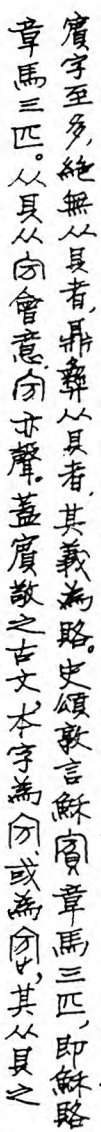 賓字至多，絕無从貝者，鼎彝从貝者，其義為賂。史頌敦言穌賓章馬三匹，即穌賂
章馬三匹。从貝从㝐會意，㝐亦聲。蓋賓敬之古文，本字為㝐，或為，其从貝之